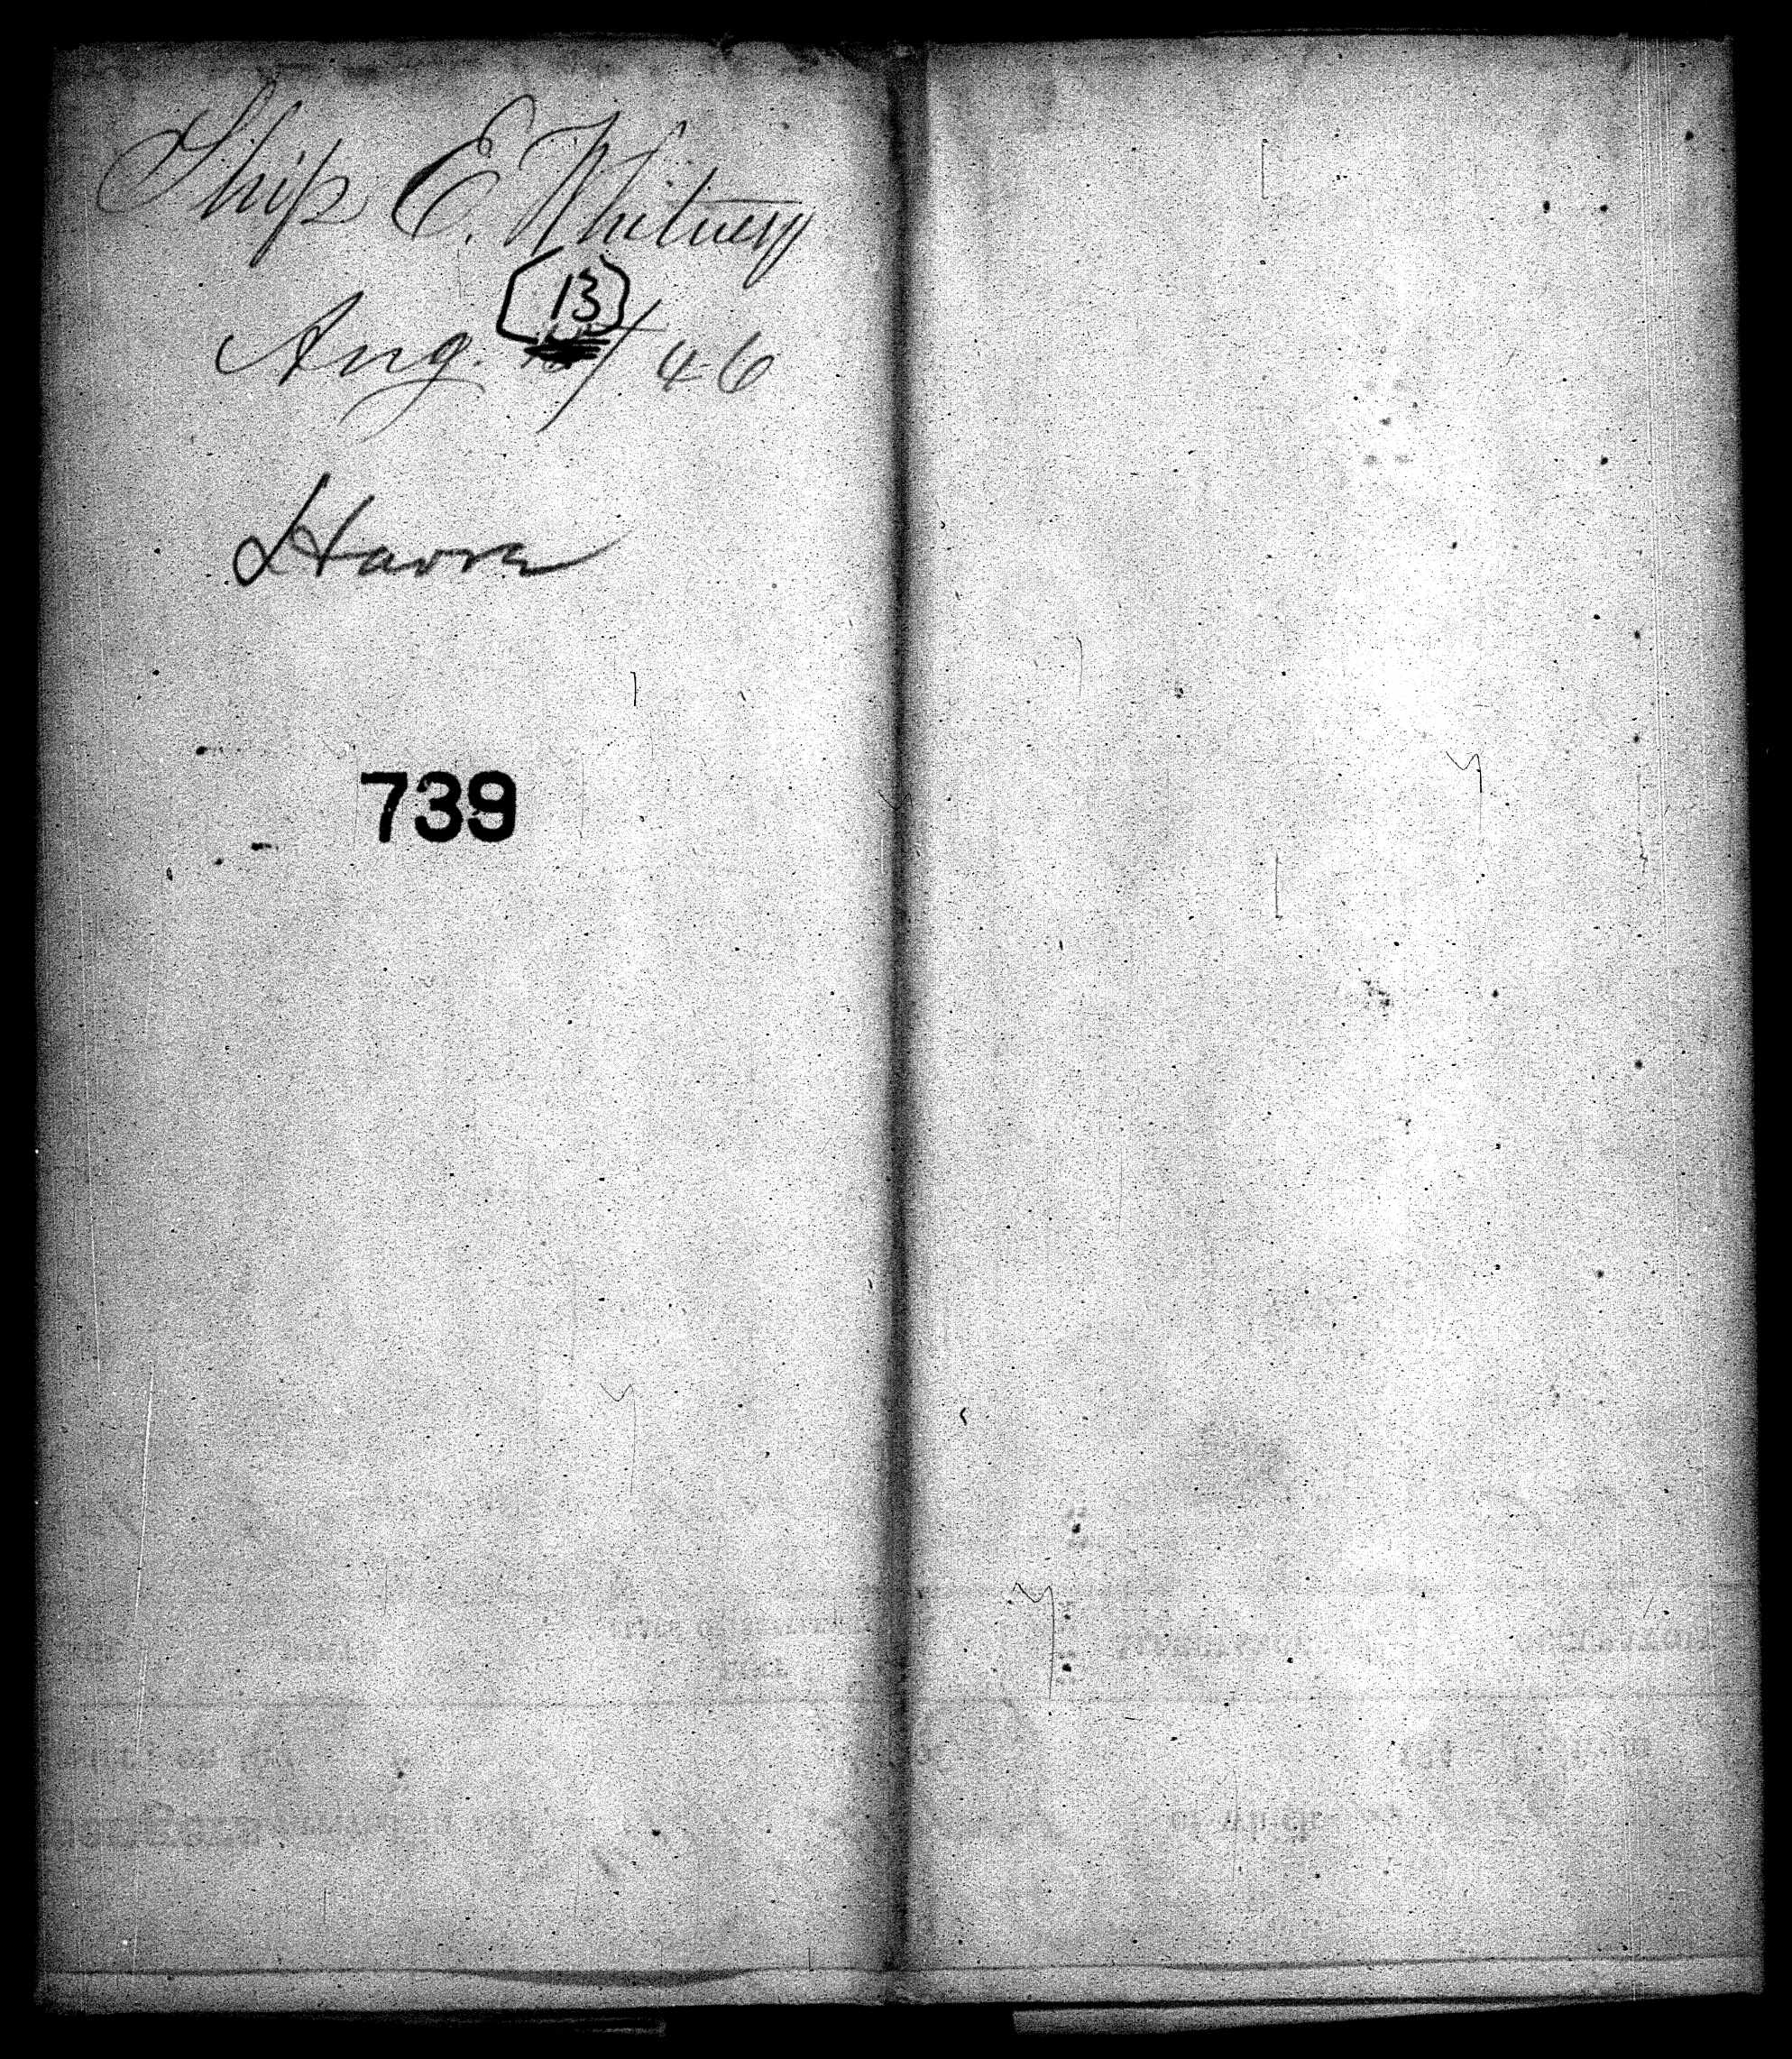 Ship E. Whitney
13
Aug. / 46
Havre
739